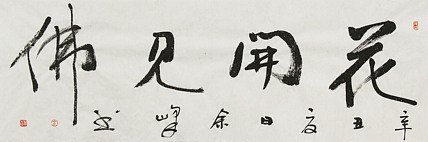 花開見佛
辛丑夏日余峰书